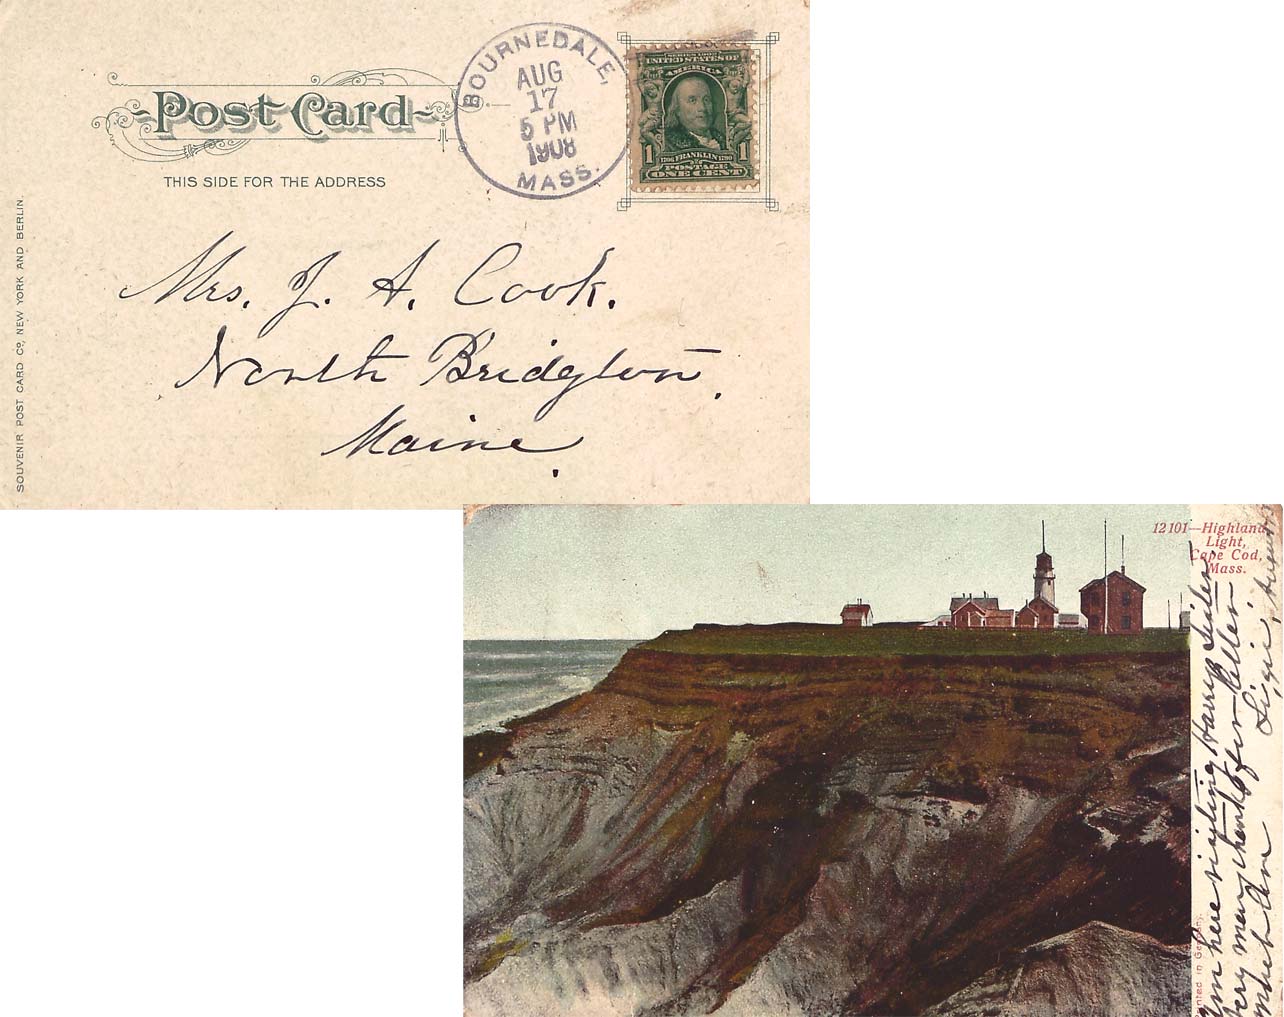 Post Card
THIS SIDE FOR THE ADDRESS
BOURNEDALE,
AUG
17
5 PM
1908
MASS.
SERIES 1902
UNITED STATES OF
AMERICA
1 1
1706 FRANKLIN 1790
POSTAGE
ONE CENT
SOUVENIR POST CARD Co., NEW YORK AND BERLIN.
Mrs. J. A. Cook.
North Bridgton,
Maine.
12101—Highland
Light,
Cape Cod,
Mass.
am here visiting Harry's sister,
very many thanks for letter
much love
nted in Germany.